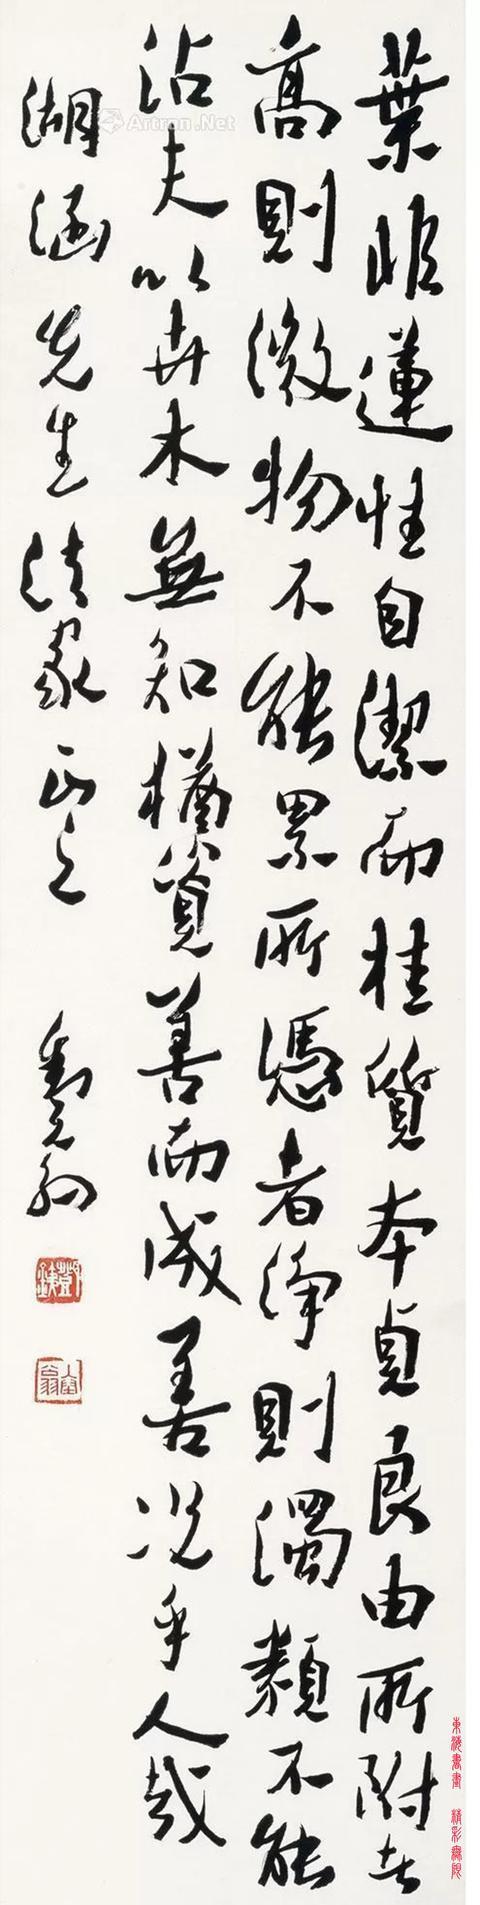 葉非蓮性自潔而桂質本貞良由所附者
高則微物不能累所憑者淨則濁類不能
沾夫以卉木無知猶資善而成善況乎人哉
湖涵先生法家正之
Artron.Net
東海書畫 精彩無限